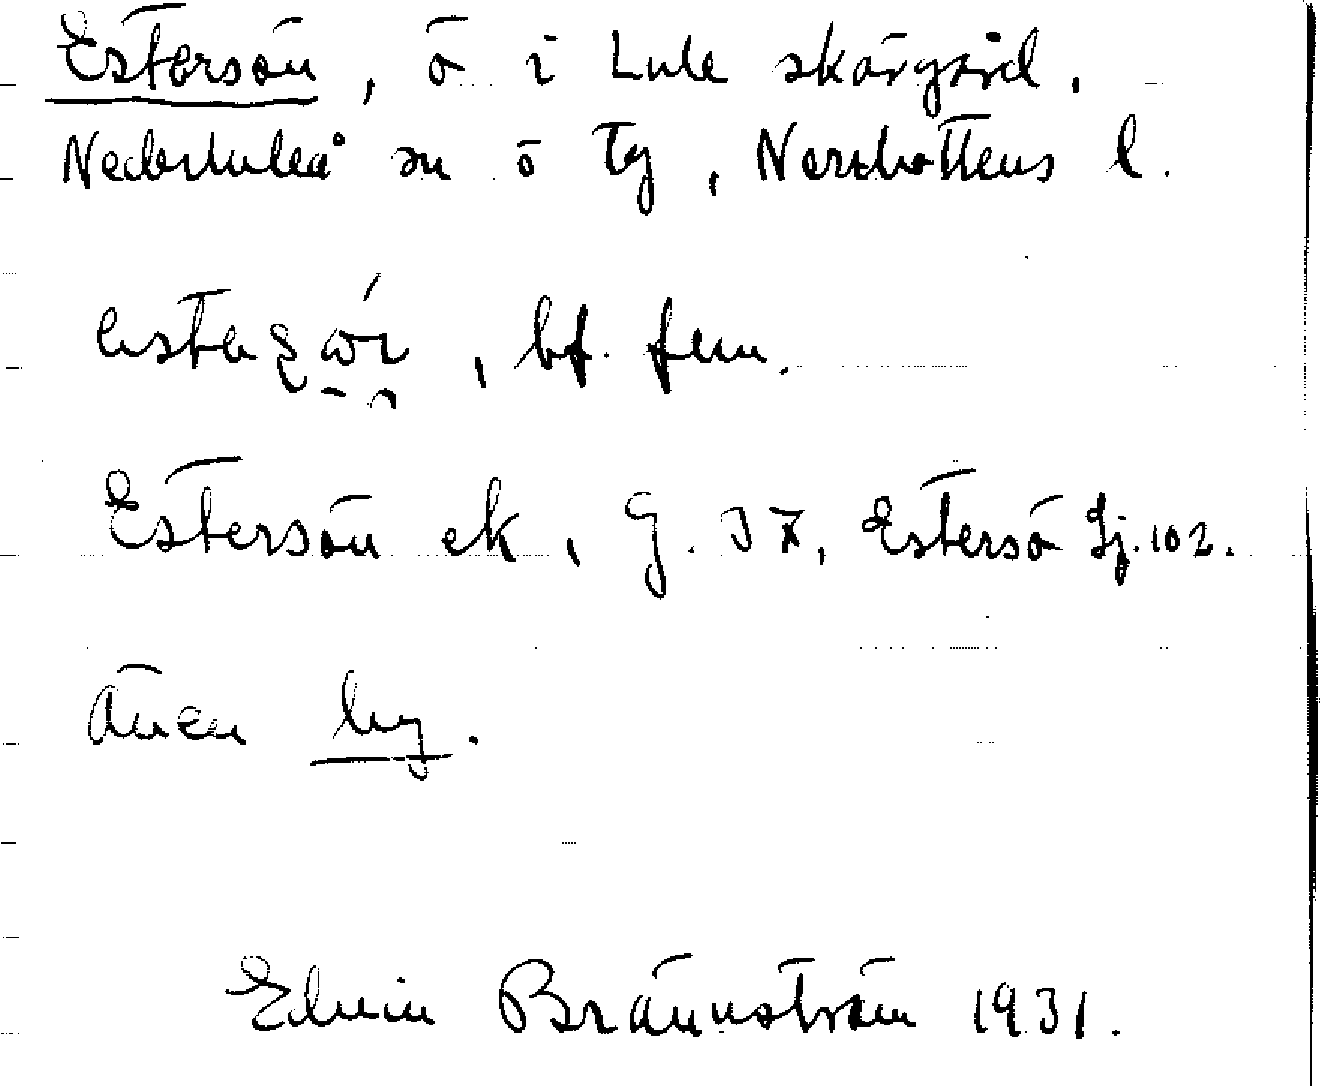 Estersön, ö i Lule skärgård.
Nederluleå sn ö Tg, Norrbottens l.
, bf. fem.
Estersön ek, G. J 7, Estersö Sj. 102.
även by.
Edwin Brännström 1931.